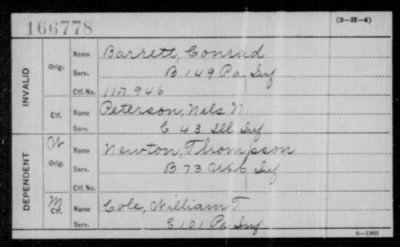 166778
(3-H-4)
INVALID
Orig. Name Barrett, Conrad
Serv. B 149 Pa Inf
Ctf. No. 117946
Ctf. Name Peterson, Nels N
Serv. C 43 Ill Inf
DEPENDENT
W Orig. Name Newton, Thompson
Serv. B 73 Inf
Ctf. No.
M Ctf. Name Cole, William T
Serv. E 101 Pa Inf